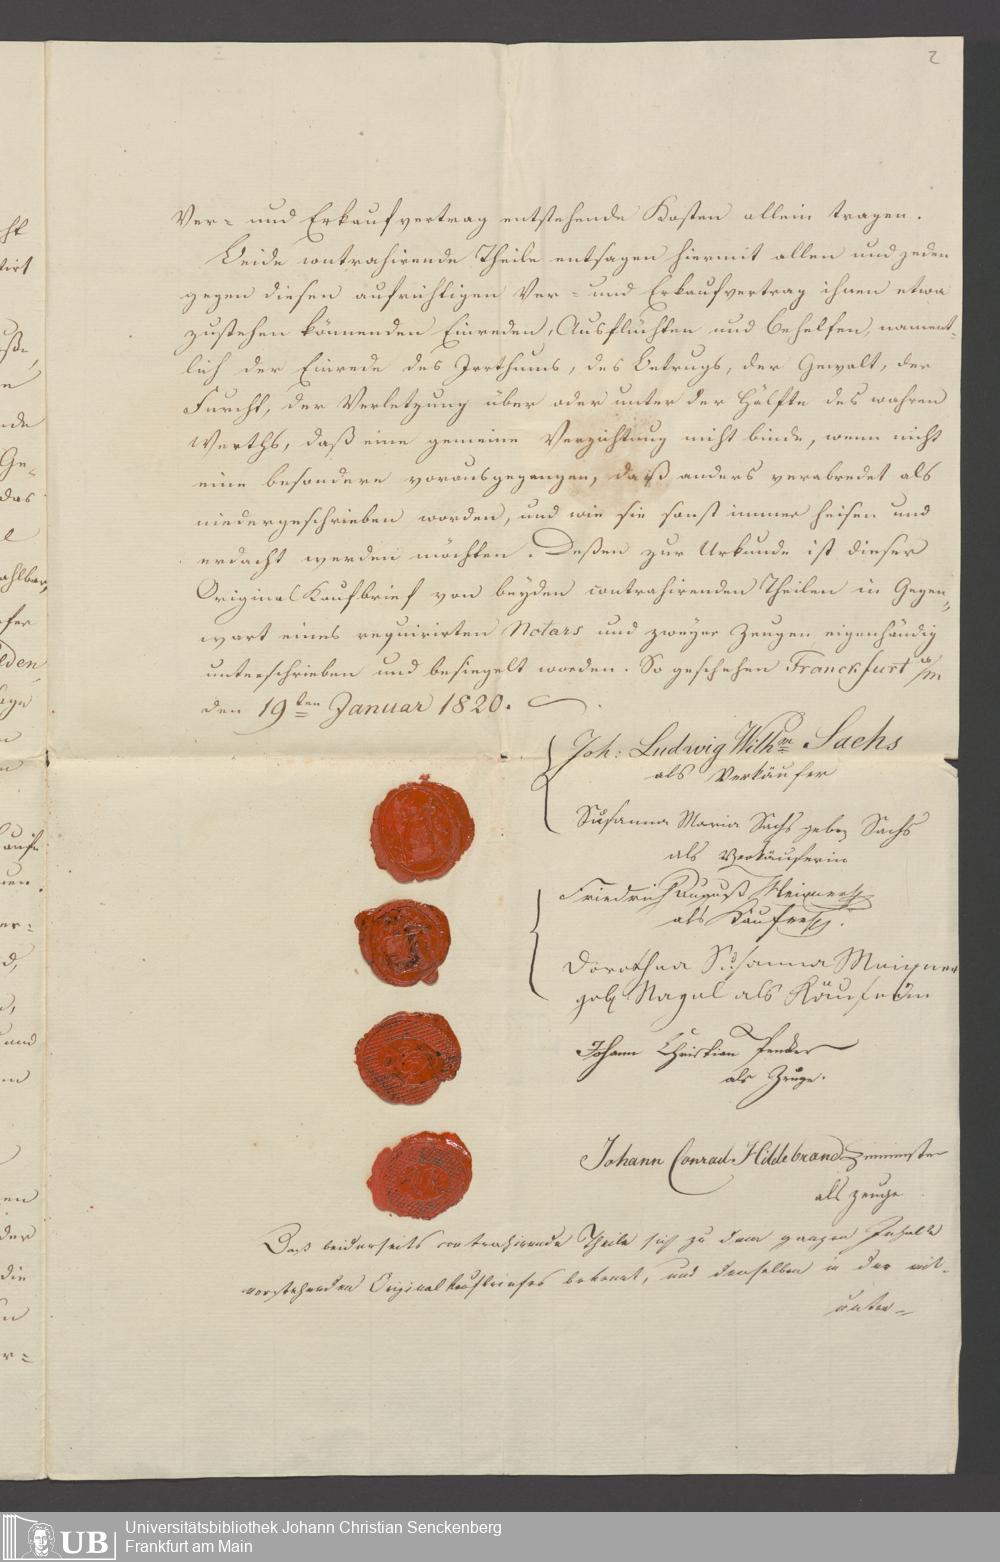 2
Ver= und Erkaufvertrag entstehende Kosten allein tragen.
Beide contrahirende Theile entsagen hiermit allen und jeden
gegen diesen aufrichtigen Ver= und Erkaufvertrag ihnen etwa
zustehen könnenden Einreden, Ausflüchten und Behelfen, nament=
lich der Einrede des Irrthums, des Betrugs, der Gewalt, der
Furcht, der Verletzung über oder unter der Hälfte des wahren
Werths, daß eine gemeine Verzichtung nicht binde, wenn nicht
eine besondere vorausgegangen, daß anders verabredet als
niedergeschrieben worden, und wie sie sonst immer heisen und
erdacht werden möchten. Deßen zur Urkunde ist dieser
Original Kaufbrief von beyden contrahirenden Theilen in Gegen=
wart eines requirirten Notars und zweyer Zeugen eigenhändig
unterschrieben und besiegelt worden. So geschehen Franckfurt a/m
den 19ten Januar 1820.
Joh: Ludwig Wilhm Sachs
als Verkäufer
Susanna Maria Sachs geboz Sachs
als Verkäuferin
Friedrich August
als Käufer.
Dorothea Susanna
geb Nagel als Käuferin
Johann Christian
als Zeuge.
Johann Conrad Hildebrand
als Zeuge
Daß beiderseits contrahirende Theile sich zu dem ganzen Inhalte
vorstehenden Original Kaufbriefes bekennt, und denselben in der mit=
unter=
cht
tirt
uße,
nde
Ge=
das
ahlbar,
fer
lden
age
aufe
uen.
er:
d,
und
en
der
die
r=
UB
Universitätsbibliothek Johann Christian Senckenberg
Frankfurt am Main